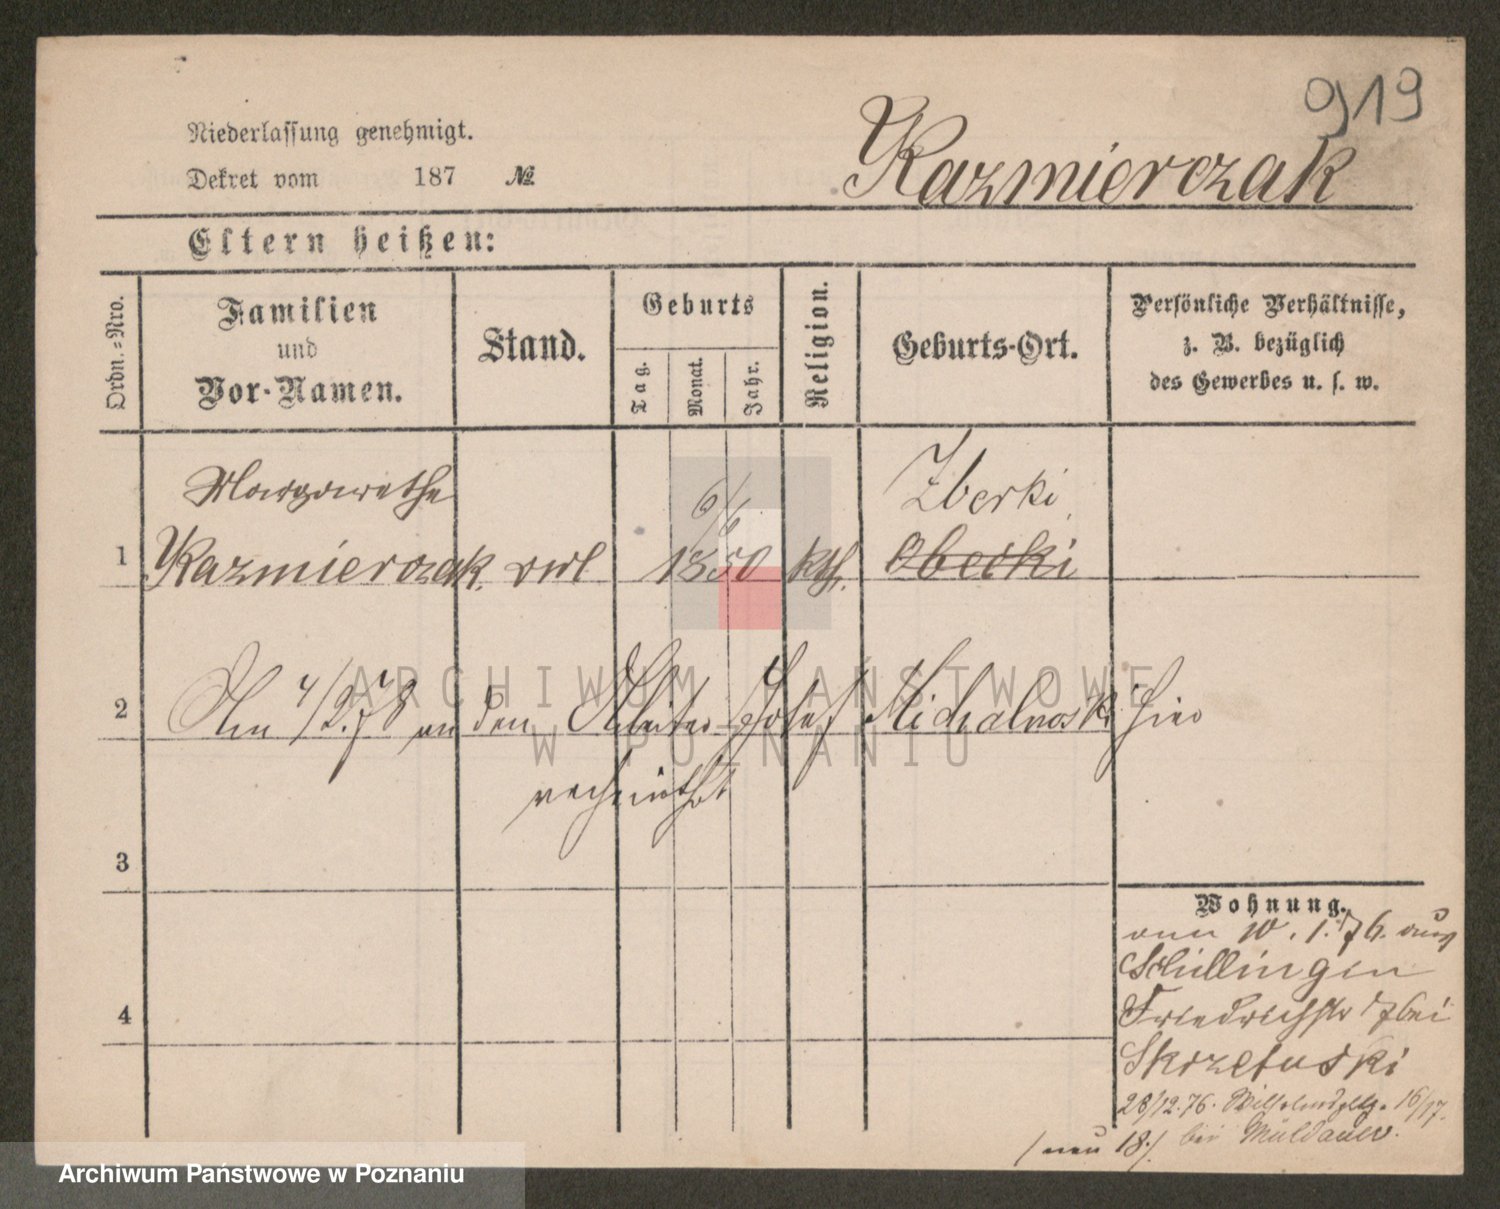 919
Niederlassung genehmigt.
Dekret vom 187 №
Kazmierczak
Eltern heißen:
Ordn.-Nro.
Familien
und
Vor-Namen.
Stand.
Geburts
Tag.
Monat.
Jahr.
Religion.
Geburts-Ort.
Persönliche Verhältnisse,
z. B. bezüglich
des Gewerbes u. s. w.
Margarethe
6/6
Zberki
1 Kazmierczak. 1850 kth. Oberki
2 Am 4/2.78 an den Arbeiter Josef Michalowski hier
verheirathet
3
4
Wohnung.
vom 10.1.76. aus
Schillingen
Friedrichstr 7 bei
Skrzetuski
28/12.76. Wilhelmspltz. 16/17.
(neu 18.) bei Müldauer.
ARCHIWUM PAŃSTWOWE
W POZNANIU
Archiwum Państwowe w Poznaniu